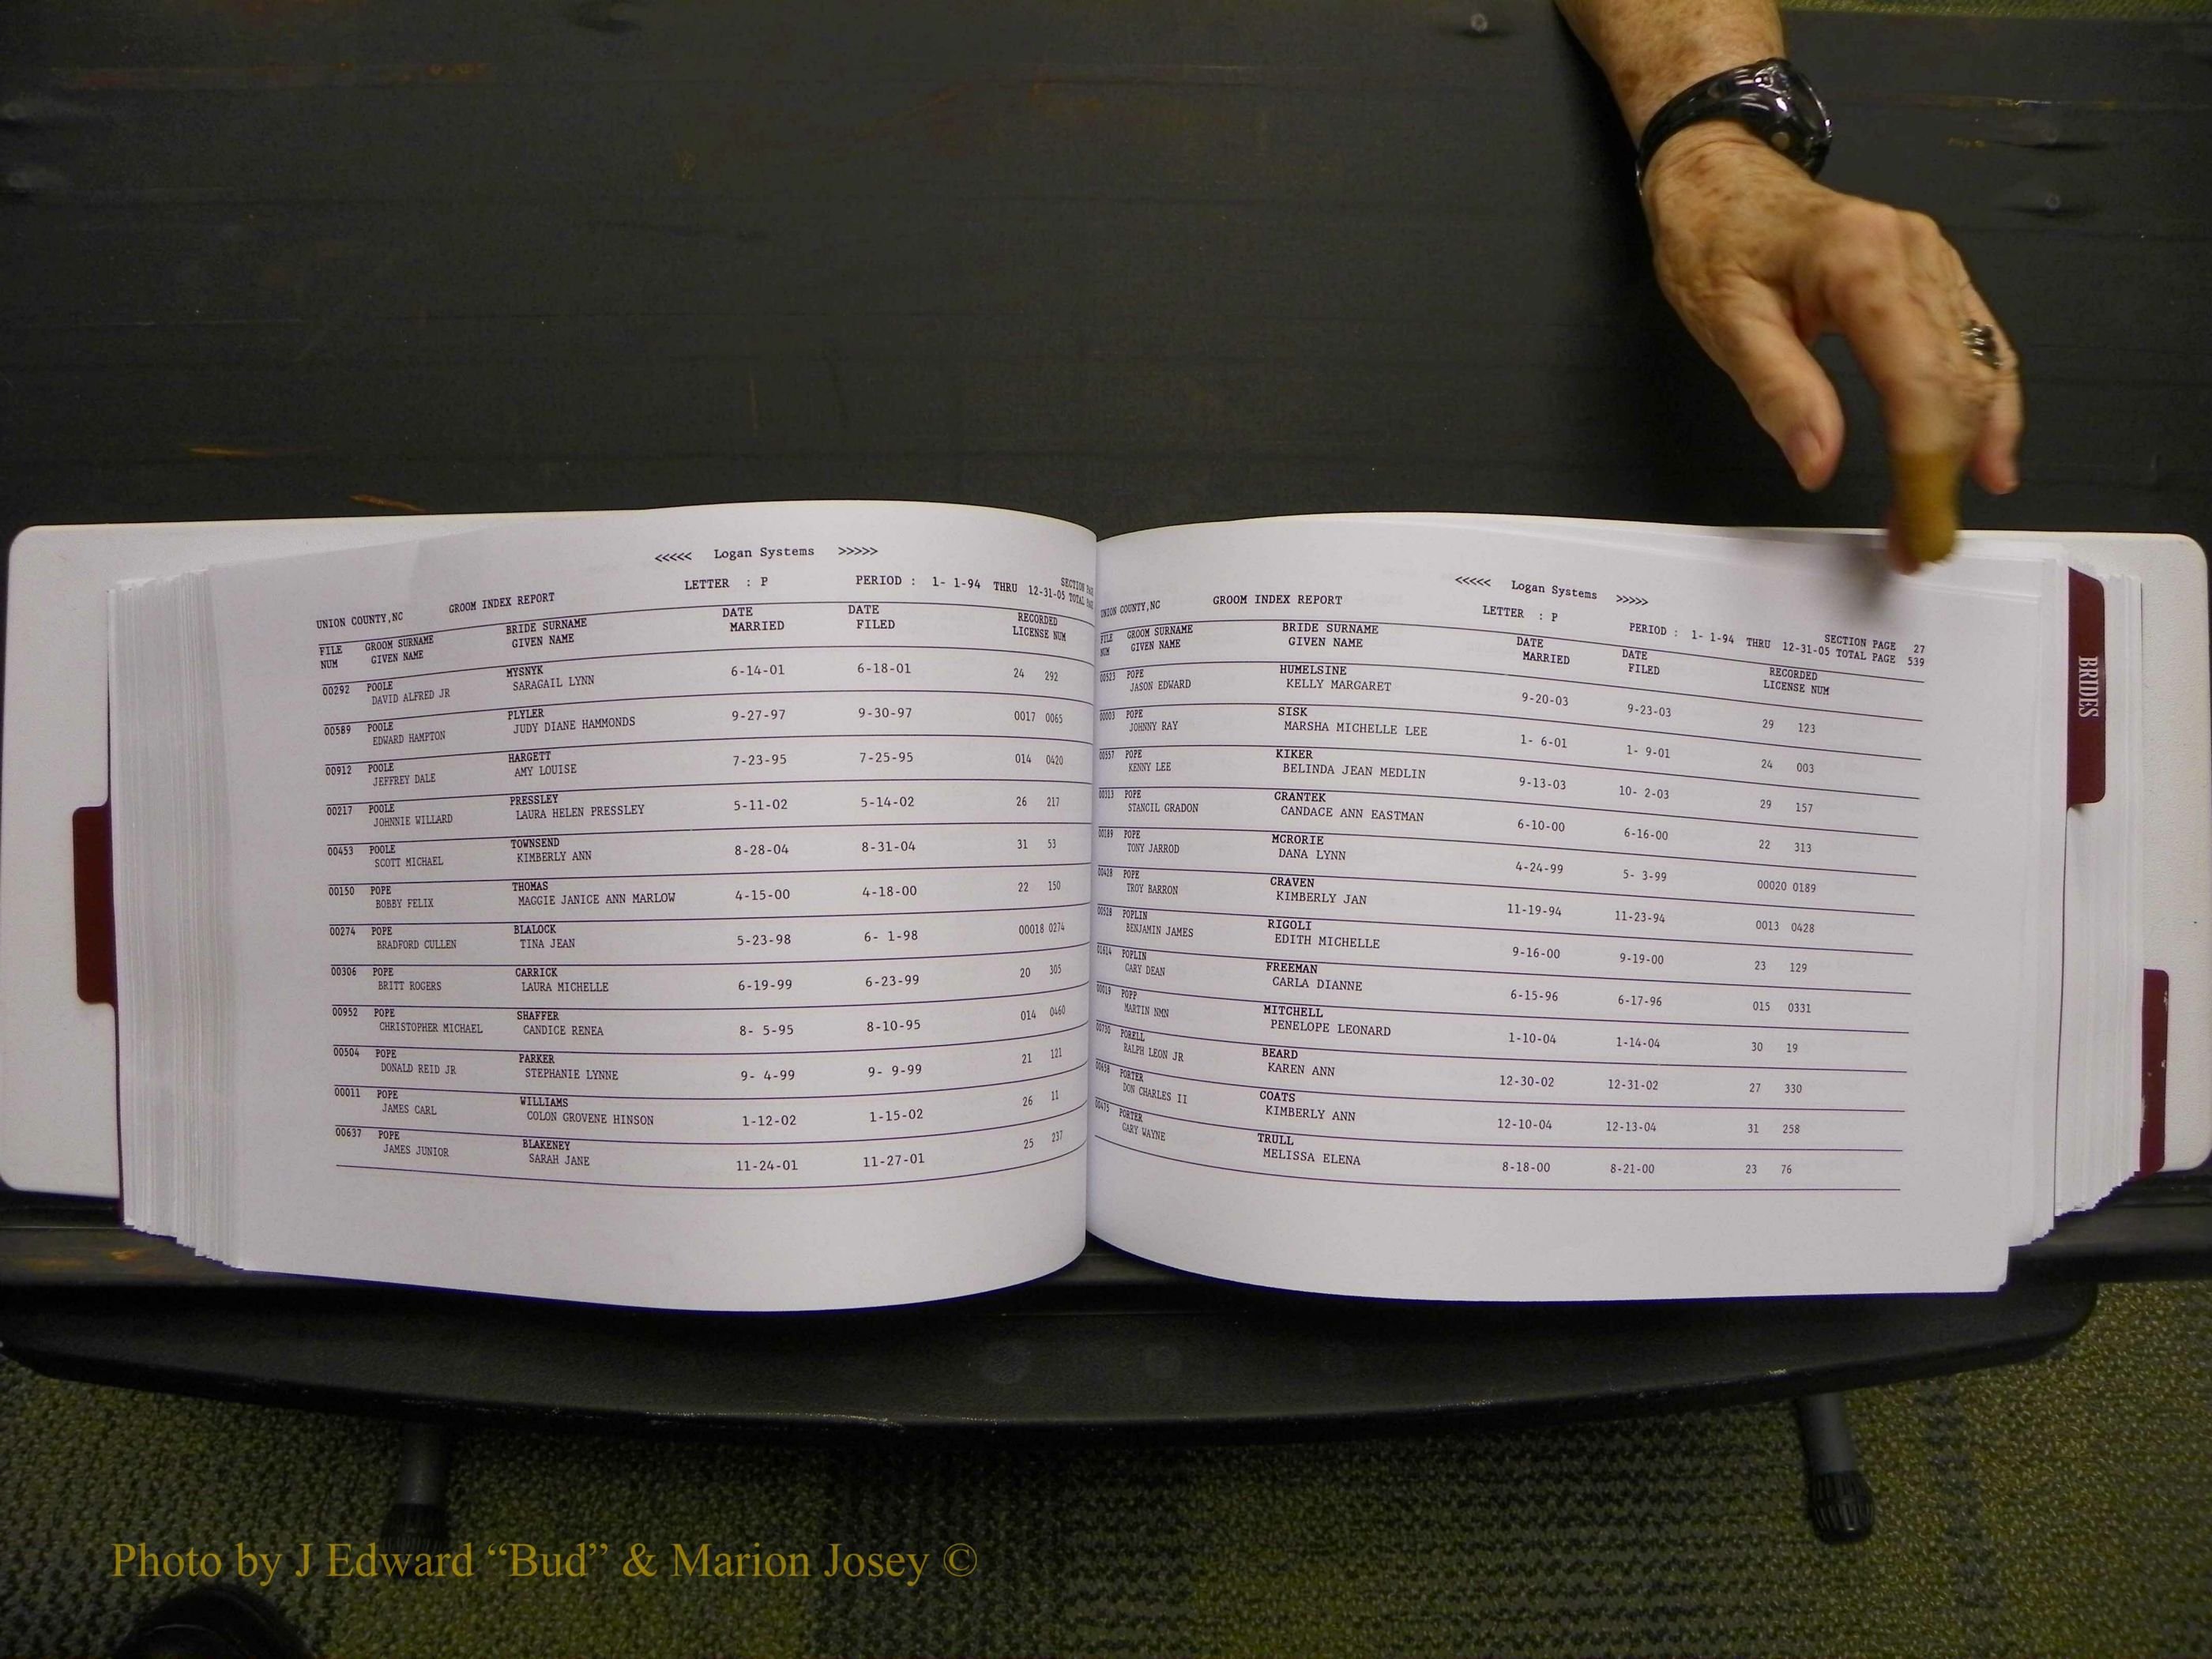 <<<<< Logan Systems >>>>>
LETTER : P PERIOD : 1- 1-94 THRU 12-31-05 SECTION PAGE
TOTAL PAGE
UNION COUNTY,NC GROOM INDEX REPORT
FILE GROOM SURNAME BRIDE SURNAME DATE DATE RECORDED
NUM GIVEN NAME GIVEN NAME MARRIED FILED LICENSE NUM
00292 POOLE MYSNYK 6-14-01 6-18-01 24 292
DAVID ALFRED JR SARAGAIL LYNN
00589 POOLE PLYLER 9-27-97 9-30-97 0017 0065
EDWARD HAMPTON JUDY DIANE HAMMONDS
00912 POOLE HARGETT 7-23-95 7-25-95 014 0420
JEFFREY DALE AMY LOUISE
00217 POOLE PRESSLEY 5-11-02 5-14-02 26 217
JOHNNIE WILLARD LAURA HELEN PRESSLEY
00453 POOLE TOWNSEND 8-28-04 8-31-04 31 53
SCOTT MICHAEL KIMBERLY ANN
00150 POPE THOMAS 4-15-00 4-18-00 22 150
BOBBY FELIX MAGGIE JANICE ANN MARLOW
00274 POPE BLALOCK 5-23-98 6- 1-98 00018 0274
BRADFORD CULLEN TINA JEAN
00306 POPE CARRICK 6-19-99 6-23-99 20 305
BRITT ROGERS LAURA MICHELLE
00952 POPE SHAFFER 8- 5-95 8-10-95 014 0460
CHRISTOPHER MICHAEL CANDICE RENEA
00504 POPE PARKER 9- 4-99 9- 9-99 21 121
DONALD REID JR STEPHANIE LYNNE
00011 POPE WILLIAMS 1-12-02 1-15-02 26 11
JAMES CARL COLON GROVENE HINSON
00637 POPE BLAKENEY 11-24-01 11-27-01 25 237
JAMES JUNIOR SARAH JANE
<<<<< Logan Systems >>>>>
UNION COUNTY,NC GROOM INDEX REPORT LETTER : P PERIOD : 1- 1-94 THRU 12-31-05 SECTION PAGE 27
TOTAL PAGE 539
FILE GROOM SURNAME BRIDE SURNAME DATE DATE RECORDED
NUM GIVEN NAME GIVEN NAME MARRIED FILED LICENSE NUM
00523 POPE HUMELSINE 9-20-03 9-23-03 29 123
JASON EDWARD KELLY MARGARET
00003 POPE SISK 1- 6-01 1- 9-01 24 003
JOHNNY RAY MARSHA MICHELLE LEE
00557 POPE KIKER 9-13-03 10- 2-03 29 157
KENNY LEE BELINDA JEAN MEDLIN
00313 POPE CRANTEK 6-10-00 6-16-00 22 313
STANCIL GRADON CANDACE ANN EASTMAN
00189 POPE MCRORIE 4-24-99 5- 3-99 00020 0189
TONY JARROD DANA LYNN
00428 POPE CRAVEN 11-19-94 11-23-94 0013 0428
TROY BARRON KIMBERLY JAN
00528 POPLIN RIGOLI 9-16-00 9-19-00 23 129
BENJAMIN JAMES EDITH MICHELLE
01614 POPLIN FREEMAN 6-15-96 6-17-96 015 0331
GARY DEAN CARLA DIANNE
00019 POPP MITCHELL 1-10-04 1-14-04 30 19
MARTIN NMN PENELOPE LEONARD
00730 PORELL BEARD 12-30-02 12-31-02 27 330
RALPH LEON JR KAREN ANN
00658 PORTER COATS 12-10-04 12-13-04 31 258
DON CHARLES II KIMBERLY ANN
00475 PORTER TRULL 8-18-00 8-21-00 23 76
GARY WAYNE MELISSA ELENA
BRIDES
Photo by J Edward “Bud” & Marion Josey ©